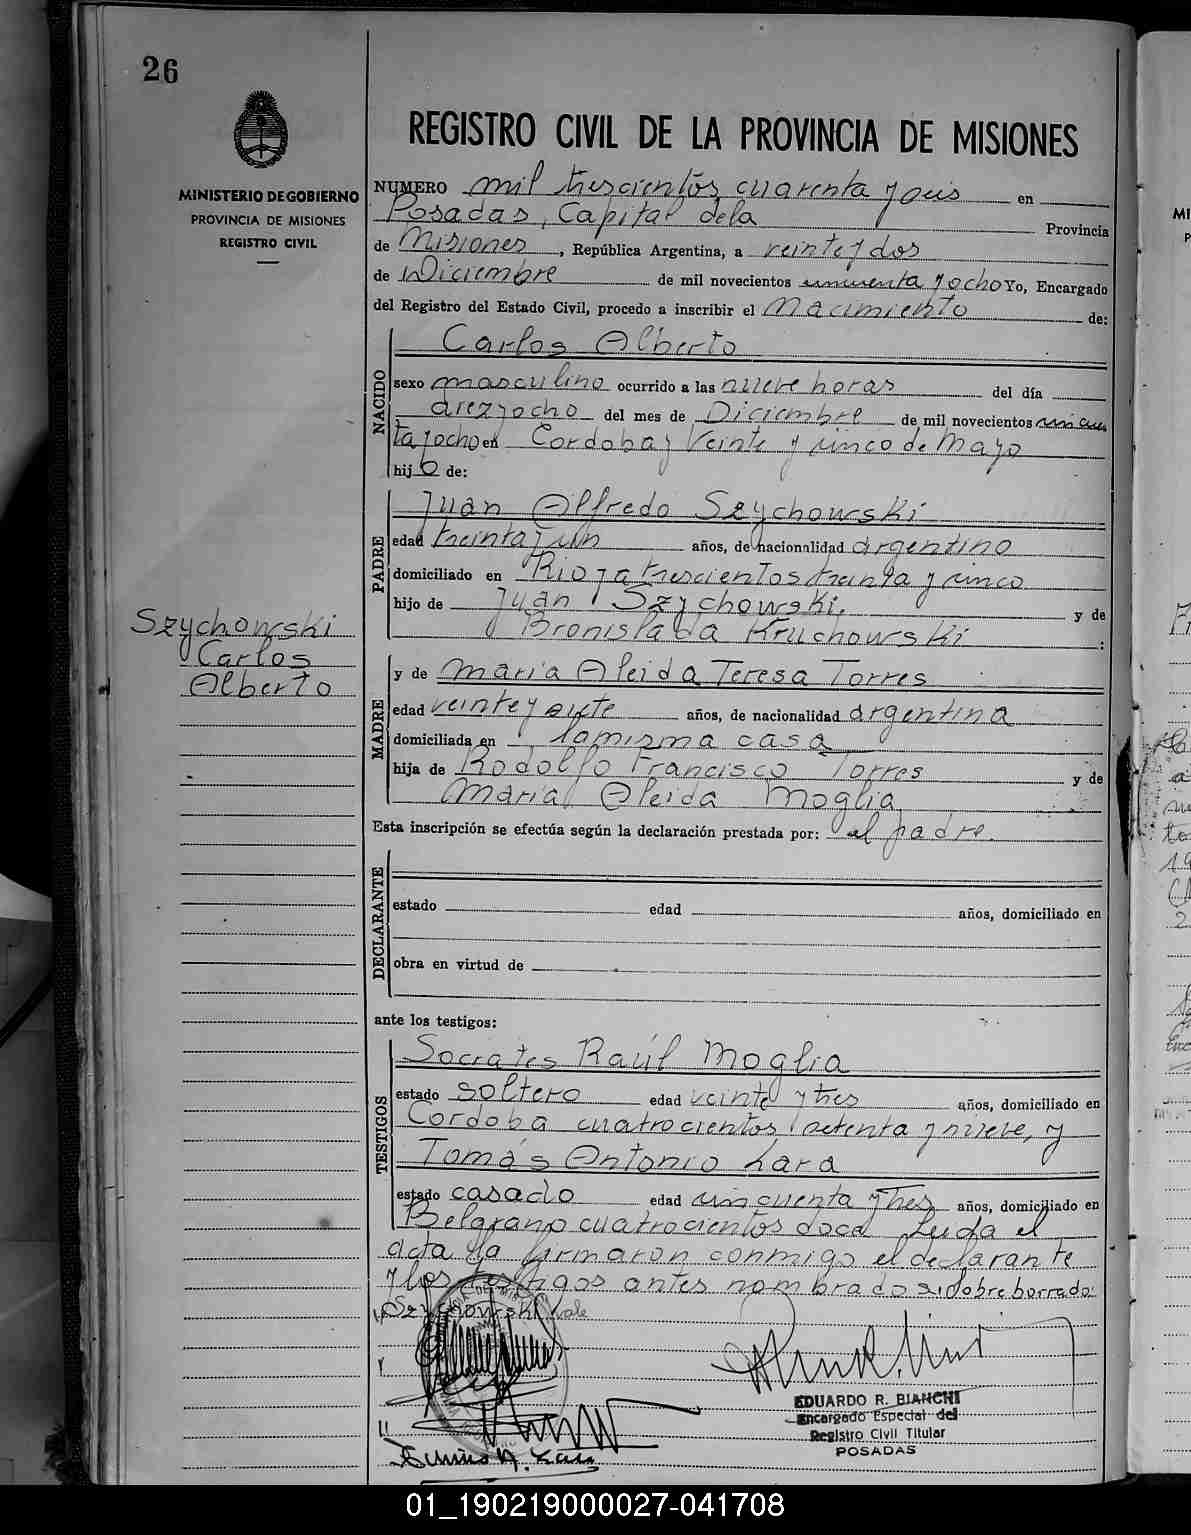 26
MINISTERIO DE GOBIERNO
PROVINCIA DE MISIONES
REGISTRO CIVIL
REGISTRO CIVIL DE LA PROVINCIA DE MISIONES
NUMERO mil trescientos cuarenta y seis en
Posadas, Capital dela Provincia
de Misiones, República Argentina, a veinte y dos
de Diciembre de mil novecientos cincuenta y ocho Yo, Encargado
del Registro del Estado Civil, procedo a inscribir el Nacimiento de:
NACIDO
Carlos Alberto
sexo masculino ocurrido a las nueve horas del día
diez y ocho del mes de Diciembre de mil novecientos cincuen
ta y ocho en Cordoba y Veinte y cinco de Mayo
hijo de:
PADRE
Juan Alfredo Szychowski
edad treinta y un años, de nacionalidad argentino
domiciliado en Rioja trescientos treinta y cinco
hijo de Juan Szychowski, y de
Bronislada Kruchowski :
Szychowski
Carlos
Alberto
MADRE
y de Maria Aleida Teresa Torres
edad veinte y siete años, de nacionalidad argentina
domiciliada en la misma casa
hija de Rodolfo Francisco Torres y de
Maria Aleida Moglia
Esta inscripción se efectúa según la declaración prestada por: el padre.
DECLARANTE
estado edad años, domiciliado en
obra en virtud de
ante los testigos:
TESTIGOS
Socrates Raúl Moglia
estado soltero edad veinte y tres años, domiciliado en
Cordoba cuatrocientos setenta y nueve, y
Tomás Antonio Lara
estado casado edad cincuenta y tres años, domiciliado en
Belgrano cuatrocientos doce Leida el
acta la firmaron conmigo el declarante
y los testigos antes nombrados. sobre borrado:
Szychowski vale
EDUARDO R. BIANCHI
Encargado Especial del
Registro Civil Titular
POSADAS
01_190219000027-041708